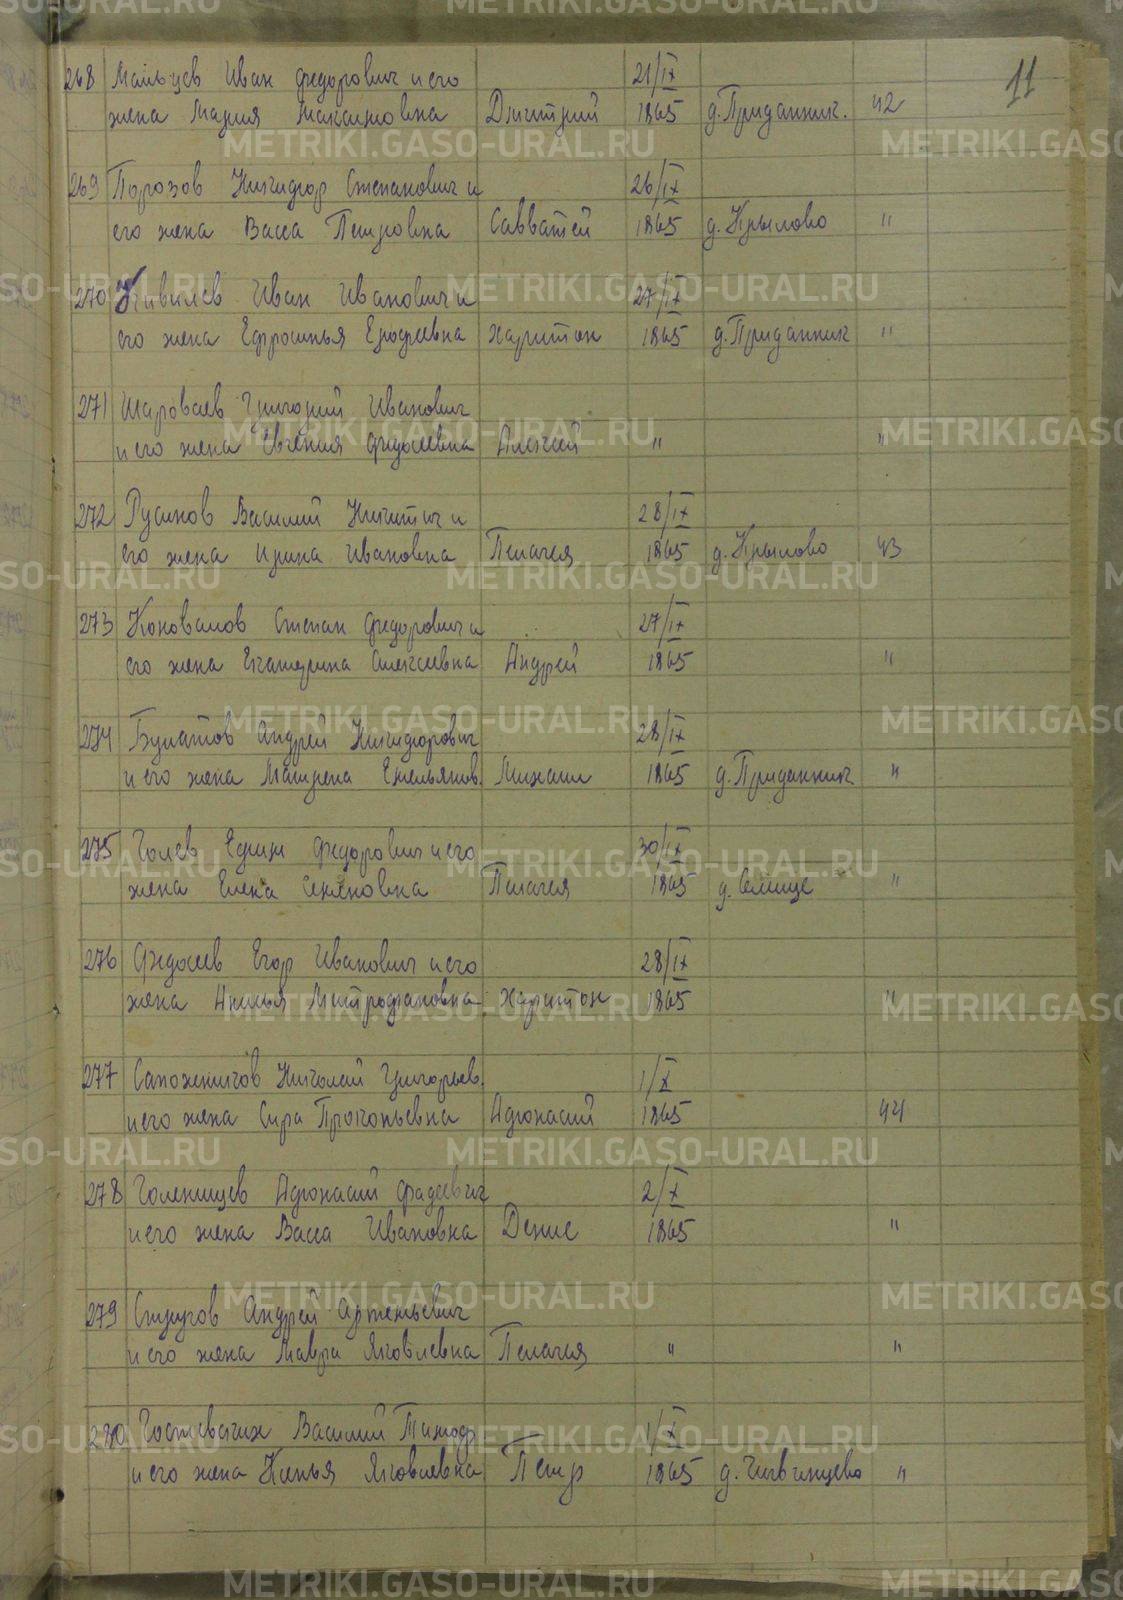 11
268 Мальцев Иван Федорович и его 21/IX
жена Мария Максимовна Дмитрий 1865 д. Приданник. 42
269 Порозов Никифор Степанович и 26/IX
его жена Васса Петровна Савватей 1865 д. Крылово "
270 Иван Иванович и 27/IX
его жена Ефросинья Ерофеевна Харитон 1865 д. Приданник "
271 Шароваев Григорий Иванович
и его жена Евгения Федосеевна Алексей " "
272 Русинов Василий Никитич и 28/IX
его жена Ирина Ивановна Пелагея 1865 д. Крылово 43
273 Коновалов Степан Федорович и 27/IX
его жена Екатерина Алексеевна Андрей 1865 "
274 Булатов Андрей Никифорович 28/IX
и его жена Матрена Емельянов. Михаил 1865 д. Приданник "
275 Голев Ефим Федорович и его 30/IX
жена Елена Семеновна Пелагея 1865 д. Селище "
276 Федосеев Егор Иванович и его 28/IX
жена Анисья Митрофановна Харитон 1865 "
277 Сапожников Николай Григорьев. 1/X
и его жена Сира Прокопьевна Афонасий 1865 44
278 Голенищев Афонасий Фадеевич 2/X
и его жена Васса Ивановна Денис 1865 "
279 Стругов Андрей Артемьевич
и его жена Мавра Яковлевна Пелагея " "
280 Гостевских Василий Тимоф. 1/X
и его жена Ксенья Яковлевна Петр 1865 д. Чивчинцево "
METRIKI.GASO-URAL.RU